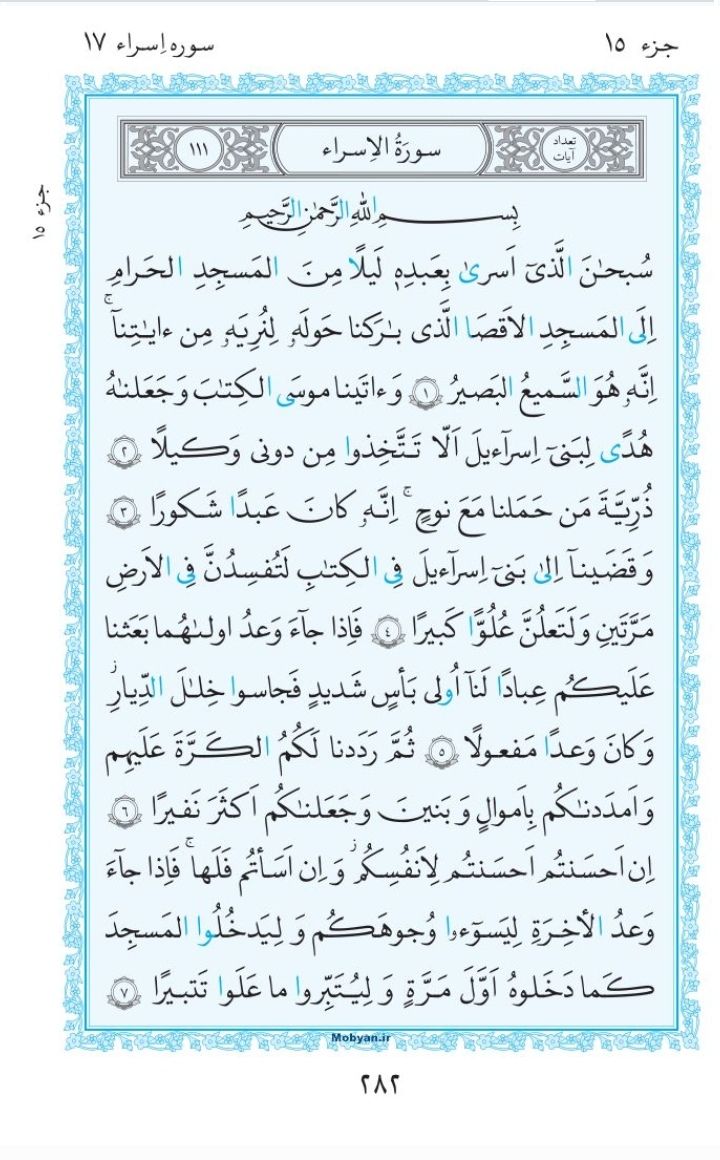 جزء ١٥
سوره اِسراء ١٧
جزء ١٥
تعداد آیات
سورَةُ الاِسراء
١١١
بِسمِ اللهِ الرَّحمٰنِ الرَّحیمِ
سُبحٰنَ الَّذیٓ اَسریٰ بِعَبدِهٖ لَیلًا مِنَ المَسجِدِ الحَرامِ
اِلَی المَسجِدِ الاَقصَا الَّذی بٰرَکنا حَولَهٗ لِنُرِیَهٗ مِن ءایٰتِنآ ۚ
اِنَّهٗ هُوَ السَّمیعُ البَصیرُ ١ وَ ءاتَینا موسَی الکِتٰبَ وَ جَعَلنٰهُ
هُدًی لِبَنیٓ اِسرآءیلَ اَلّا تَتَّخِذوا مِن دونی وَکیلًا ٢
ذُرِّیَّةَ مَن حَمَلنا مَعَ نوحٍ ۚ اِنَّهٗ کانَ عَبدًا شَکورًا ٣
وَ قَضَینآ اِلیٰ بَنیٓ اِسرآءیلَ فِی الکِتٰبِ لَتُفسِدُنَّ فِی الاَرضِ
مَرَّتَینِ وَ لَتَعلُنَّ عُلُوًّا کَبیرًا ٤ فَاِذا جآءَ وَعدُ اولىٰهُما بَعَثنا
عَلَیکُم عِبادًا لَنآ اُولی بَأسٍ شَدیدٍ فَجاسوا خِلٰلَ الدِّیارِ ۚ
وَ کانَ وَعدًا مَفعولًا ٥ ثُمَّ رَدَدنا لَکُمُ الکَرَّةَ عَلَیهِم
وَ اَمدَدنٰکُم بِاَموالٍ وَ بَنینَ وَ جَعَلنٰکُم اَکثَرَ نَفیرًا ٦
اِن اَحسَنتُم اَحسَنتُم لِاَنفُسِکُم ۖ وَ اِن اَسَأتُم فَلَها ۚ فَاِذا جآءَ
وَعدُ الأخِرَةِ لِیَسوٓءوا وُجوهَکُم وَ لِیَدخُلُوا المَسجِدَ
کَما دَخَلوهُ اَوَّلَ مَرَّةٍ وَ لِیُتَبِّروا ما عَلَوا تَتبیرًا ٧
Mobyan.ir
٢٨٢